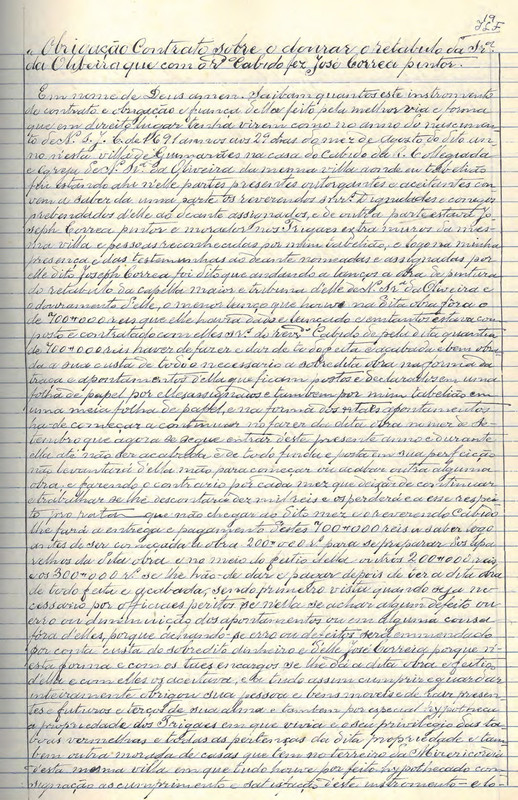 19
Obrigação Contrato sobre o dourar o retabulo da Srª
da Oliveira que com o Rdº Cabido fez José Correa pintor.
Em nome de Deus amen. Saibam quantos este instromento
de contrato e obrigação e fiança delle feito pela melhor via e forma
que em direito lugar tenha virem como no anno do nascimen-
to de N. S. J. C. de 1691 annos aos 29 dias do mez de Agosto do dito an-
no n'esta villa de Guimarães na casa do Cabido da R. Collegiada
e Egreja de Nª Srª da Oliveira da mesma villa aonde eu tabelião
fui estando ahi n'elle partes presentes outorgantes e aceitantes con-
vem a saber da uma parte os reverendos snrs. Dignidades e conegos
prebendados d'elle ao deante assignados, e de outra parte estava Jo-
seph Correa pintor e morador nos Trigaes extra muros da mes-
ma villa e pessoas reconhecidas por mim tabelião, e logo na minha
presença e das testemunhas ao deante nomeadas e assignadas por
elle dito Joseph Correa foi dito que andando a lanços a obra de pintura
do retabulo da capella maior e tribuna d'elle de Nª Srª da Oliveira e
o douramento d'elle, o menor lanço que houve na dita obra fora o
de 700$000 reis que elle havia dado e lançado e emtanto estava com-
posto e contratado com elles Srs. do Revdº Cabido de pela dita quantia
de 700$000 reis haver de fazer e dar de todo feita e acabada e bem obra-
da a sua custa de todo o necessario a sobredita obra na forma da
traça e apontamentos d'ella que ficam postos e declarados em uma
folha de papel por elles assignados e tambem por mim tabelião em
uma meia folha de papel, e na forma dos taes apontamentos
ha de começar a continuar no fazer da dita obra no mez de Se-
tembro que agora se segue entrar deste presente anno e durante
ella até não ser acabada e de todo finda e posta em sua perfeição
não levantará d'ella mão para começar ou acabar outra alguma
obra, e fazendo o contrario por cada mez que deixar de continuar
e trabalhar se lhe descontará dez mil reis e os perderá a esse respei-
to que não chegar ao dito mez e o reverendo Cabido
lhe fará a entrega e pagamento d'estes 700$000 reis a saber logo
antes de ser começada a obra 200$000 rs para se preparar dos apa-
relhos da dita obra e no meio do feitio della outros 200$000 reis
e os 300$000 rs se lhe hão-de dar e pagar depois de ver a dita obra
de todo feita e acabada, sendo primeiro vista quando seja ne-
cessario por officiaes peritos se nella se achar algum defeito ou
erro ou diminuição dos apontamentos ou em alguma cousa
fóra d'elles, porque dando-se erro ou defeitos será emmendado
por conta custa do sobredito dinheiro e d'elle José Correia porque n'-
esta forma e com os taes encargos se lhe dá a dita obra e feitio
d'ella e com elles os aceitava, e a tudo assim cumprir e guardar
inteiramente obrigou sua pessoa e bens moveis e de raiz presen-
tes e futuros e terços de sua alma e tambem por especial hypotheca
a propriedade dos Trigaes em que vivia e o seu privilegio das ta-
boas vermelhas e todas as pertenças da dita propriedade e tam-
bem outra morada de casas que tem no terreiro da Misericordia
desta mesma villa em que tudo houve por feito hypothecado con-
signação ao cumprimento e satisfação deste instromento – e lo-